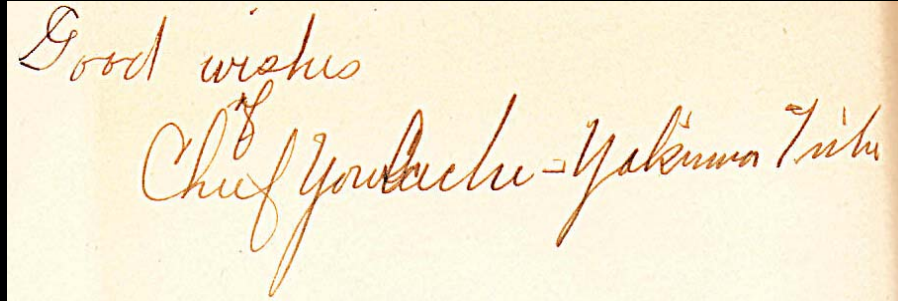 Good wishes
of
Chief Yowlache - Yakima Tribe